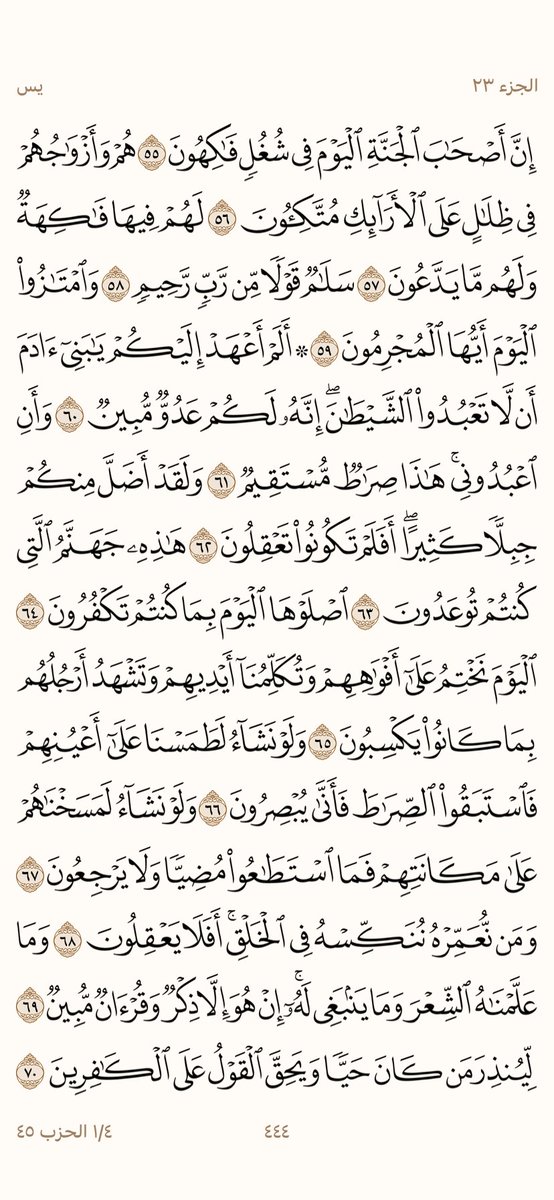 الجزء ٢٣
يس
إِنَّ أَصْحَٰبَ ٱلْجَنَّةِ ٱلْيَوْمَ فِى شُغُلٍ فَٰكِهُونَ ٥٥ هُمْ وَأَزْوَٰجُهُمْ
فِى ظِلَٰلٍ عَلَى ٱلْأَرَآئِكِ مُتَّكِـُٔونَ ٥٦ لَهُمْ فِيهَا فَٰكِهَةٌ
وَلَهُم مَّا يَدَّعُونَ ٥٧ سَلَٰمٌ قَوْلًا مِّن رَّبٍّ رَّحِيمٍ ٥٨ وَٱمْتَٰزُوا۟
ٱلْيَوْمَ أَيُّهَا ٱلْمُجْرِمُونَ ٥٩ ۞ أَلَمْ أَعْهَدْ إِلَيْكُمْ يَٰبَنِىٓ ءَادَمَ
أَن لَّا تَعْبُدُوا۟ ٱلشَّيْطَٰنَ ۖ إِنَّهُۥ لَكُمْ عَدُوٌّ مُّبِينٌ ٦٠ وَأَنِ
ٱعْبُدُونِى ۚ هَٰذَا صِرَٰطٌ مُّسْتَقِيمٌ ٦١ وَلَقَدْ أَضَلَّ مِنكُمْ
جِبِلًّا كَثِيرًا ۖ أَفَلَمْ تَكُونُوا۟ تَعْقِلُونَ ٦٢ هَٰذِهِۦ جَهَنَّمُ ٱلَّتِى
كُنتُمْ تُوعَدُونَ ٦٣ ٱصْلَوْهَا ٱلْيَوْمَ بِمَا كُنتُمْ تَكْفُرُونَ ٦٤
ٱلْيَوْمَ نَخْتِمُ عَلَىٰٓ أَفْوَٰهِهِمْ وَتُكَلِّمُنَآ أَيْدِيهِمْ وَتَشْهَدُ أَرْجُلُهُم
بِمَا كَانُوا۟ يَكْسِبُونَ ٦٥ وَلَوْ نَشَآءُ لَطَمَسْنَا عَلَىٰٓ أَعْيُنِهِمْ
فَٱسْتَبَقُوا۟ ٱلصِّرَٰطَ فَأَنَّىٰ يُبْصِرُونَ ٦٦ وَلَوْ نَشَآءُ لَمَسَخْنَٰهُمْ
عَلَىٰ مَكَانَتِهِمْ فَمَا ٱسْتَطَٰعُوا۟ مُضِيًّا وَلَا يَرْجِعُونَ ٦٧
وَمَن نُّعَمِّرْهُ نُنَكِّسْهُ فِى ٱلْخَلْقِ ۖ أَفَلَا يَعْقِلُونَ ٦٨ وَمَا
عَلَّمْنَٰهُ ٱلشِّعْرَ وَمَا يَنۢبَغِى لَهُۥٓ ۚ إِنْ هُوَ إِلَّا ذِكْرٌ وَقُرْءَانٌ مُّبِينٌ ٦٩
لِّيُنذِرَ مَن كَانَ حَيًّا وَيَحِقَّ ٱلْقَوْلُ عَلَى ٱلْكَٰفِرِينَ ٧٠
٤٤٤
١/٤ الحزب ٤٥